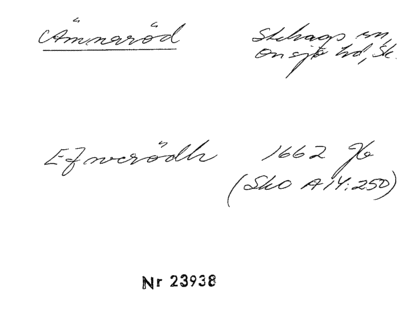 Ämneröd Stehags sn,
Onsjö hd, Sk.
Efwerödh 1662 Jb
(Sko A 14:250)
Nr 23938